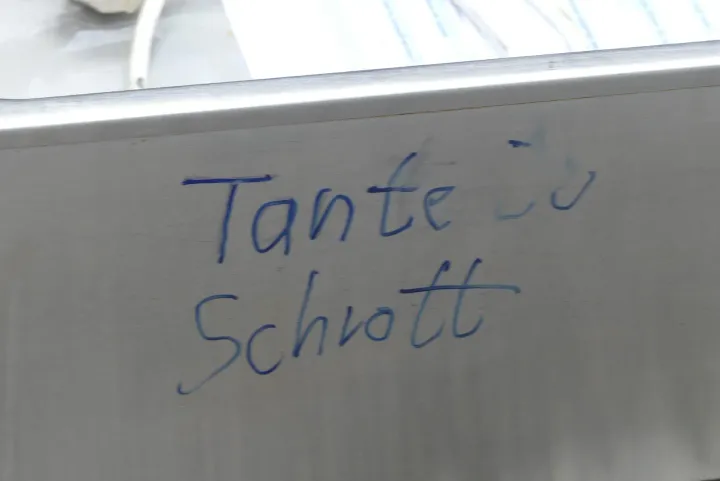 Tante
Schrott